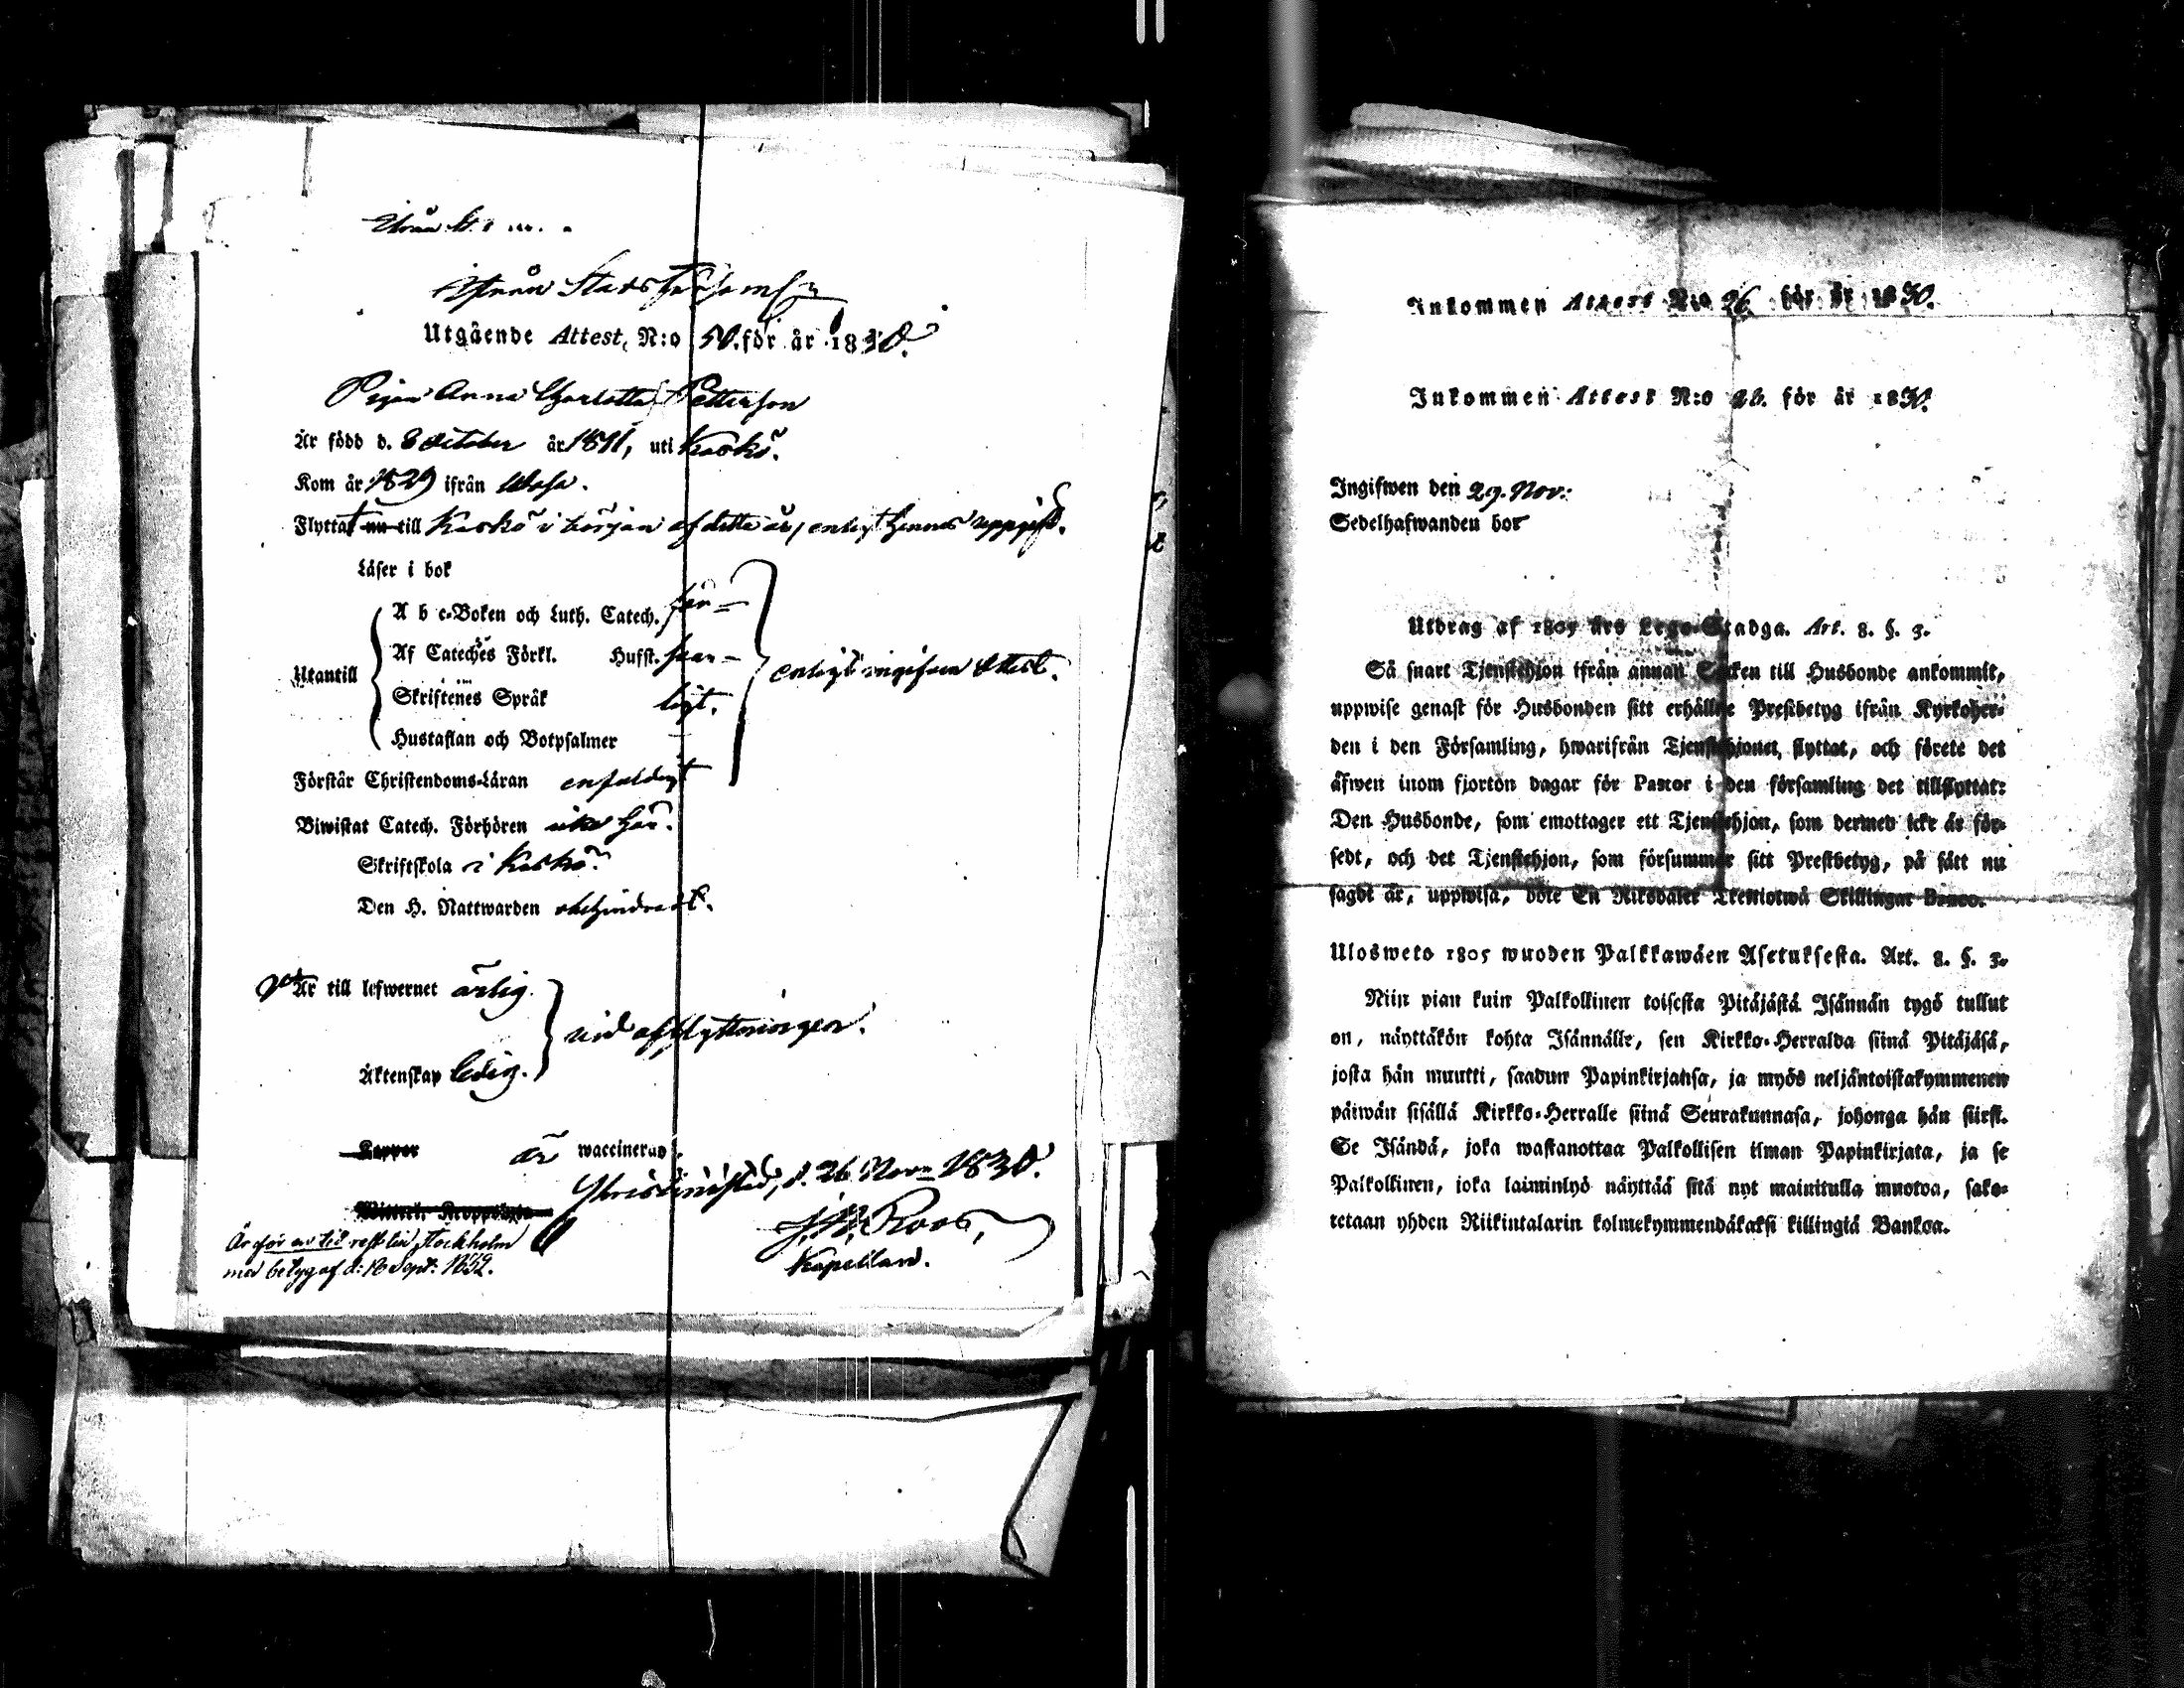 Ifrån Stadsförsaml:n
Utgående Attest, N:o 50. för år 1830.
Pigan Anna Charlotta Petterson
Är född d. 8 October år 1811, uti Kaskö.
Kom år 1829 ifrån Wasa.
Flyttat nu till Kaskö i början af detta år, enligt hennes uppgift.
Läser i bok
A b c-Boken och Luth. Catech. för-
Af Cateches Förkl. Hufst. svar-
Utantill
enligt ingifven attest.
Skriftenes Språk ligt.
Hustaflan och Botpsalmer
Förstår Christendoms-Läran enfaldigt
Biwistat Catech. Förhören icke här.
Skriftskola i Kaskö.
Den H. Nattwarden obehindradt.
Är till lefwernet ärlig.
vid afflyttningen.
Äktenskap ledig.
Koppor är waccinerad.
Christinestad, d. 26 Nov. 1830.
Roos,
Kapellan.
Stockholm
med betyg af d: 18 Sept: 1832.
Inkommen Attest N:o 26. för år 1830.
Inkommen Attest N:o 26. för år 1830.
Ingifwen den 29. Nov:
Sedelhafwanden bor
Utdrag af 1805 års Lego-Stadga. Art. 8. §. 3.
Så snart Tjenstehjon ifrån annan Socken till Husbonde ankommit,
uppwise genast för Husbonden sitt erhållne Prestbetyg ifrån Kyrkoher-
den i den Församling, hwarifrån Tjenstehjonet flyttat, och förete det
äfwen inom fjorton dagar för Pastor i den församling det tillflyttat:
Den Husbonde, som emottager ett Tjenstehjon, som dermed icke är för-
sedt, och det Tjenstehjon, som försummar sitt Prestbetyg, på sätt nu
sagdt är, uppwisa, böte En Riksdaler Trettiotwå Skillingar Banco.
Ulosweto 1805 wuoden Palkkawäen Asetuksesta. Art. 8. §. 3.
Niin pian kuin Palkollinen toisesta Pitäjästä Isännän tygö tullut
on, näyttäkön kohta Isännälle, sen Kirkko-Herralda siinä Pitäjäsä,
josta hän muutti, saadun Papinkirjansa, ja myös neljäntoistakymmenen
päiwän sisällä Kirkko-Herralle siinä Seurakunnasa, johonga hän siirst.
Se Isändä, joka wastanottaa Palkollisen ilman Papinkirjata, ja se
Palkollinen, joka laiminlyö näyttää sitä nyt mainitulla muotoa, sako-
tetaan yhden Riikintalarin kolmekymmendäkaksi killingiä Bankoa.